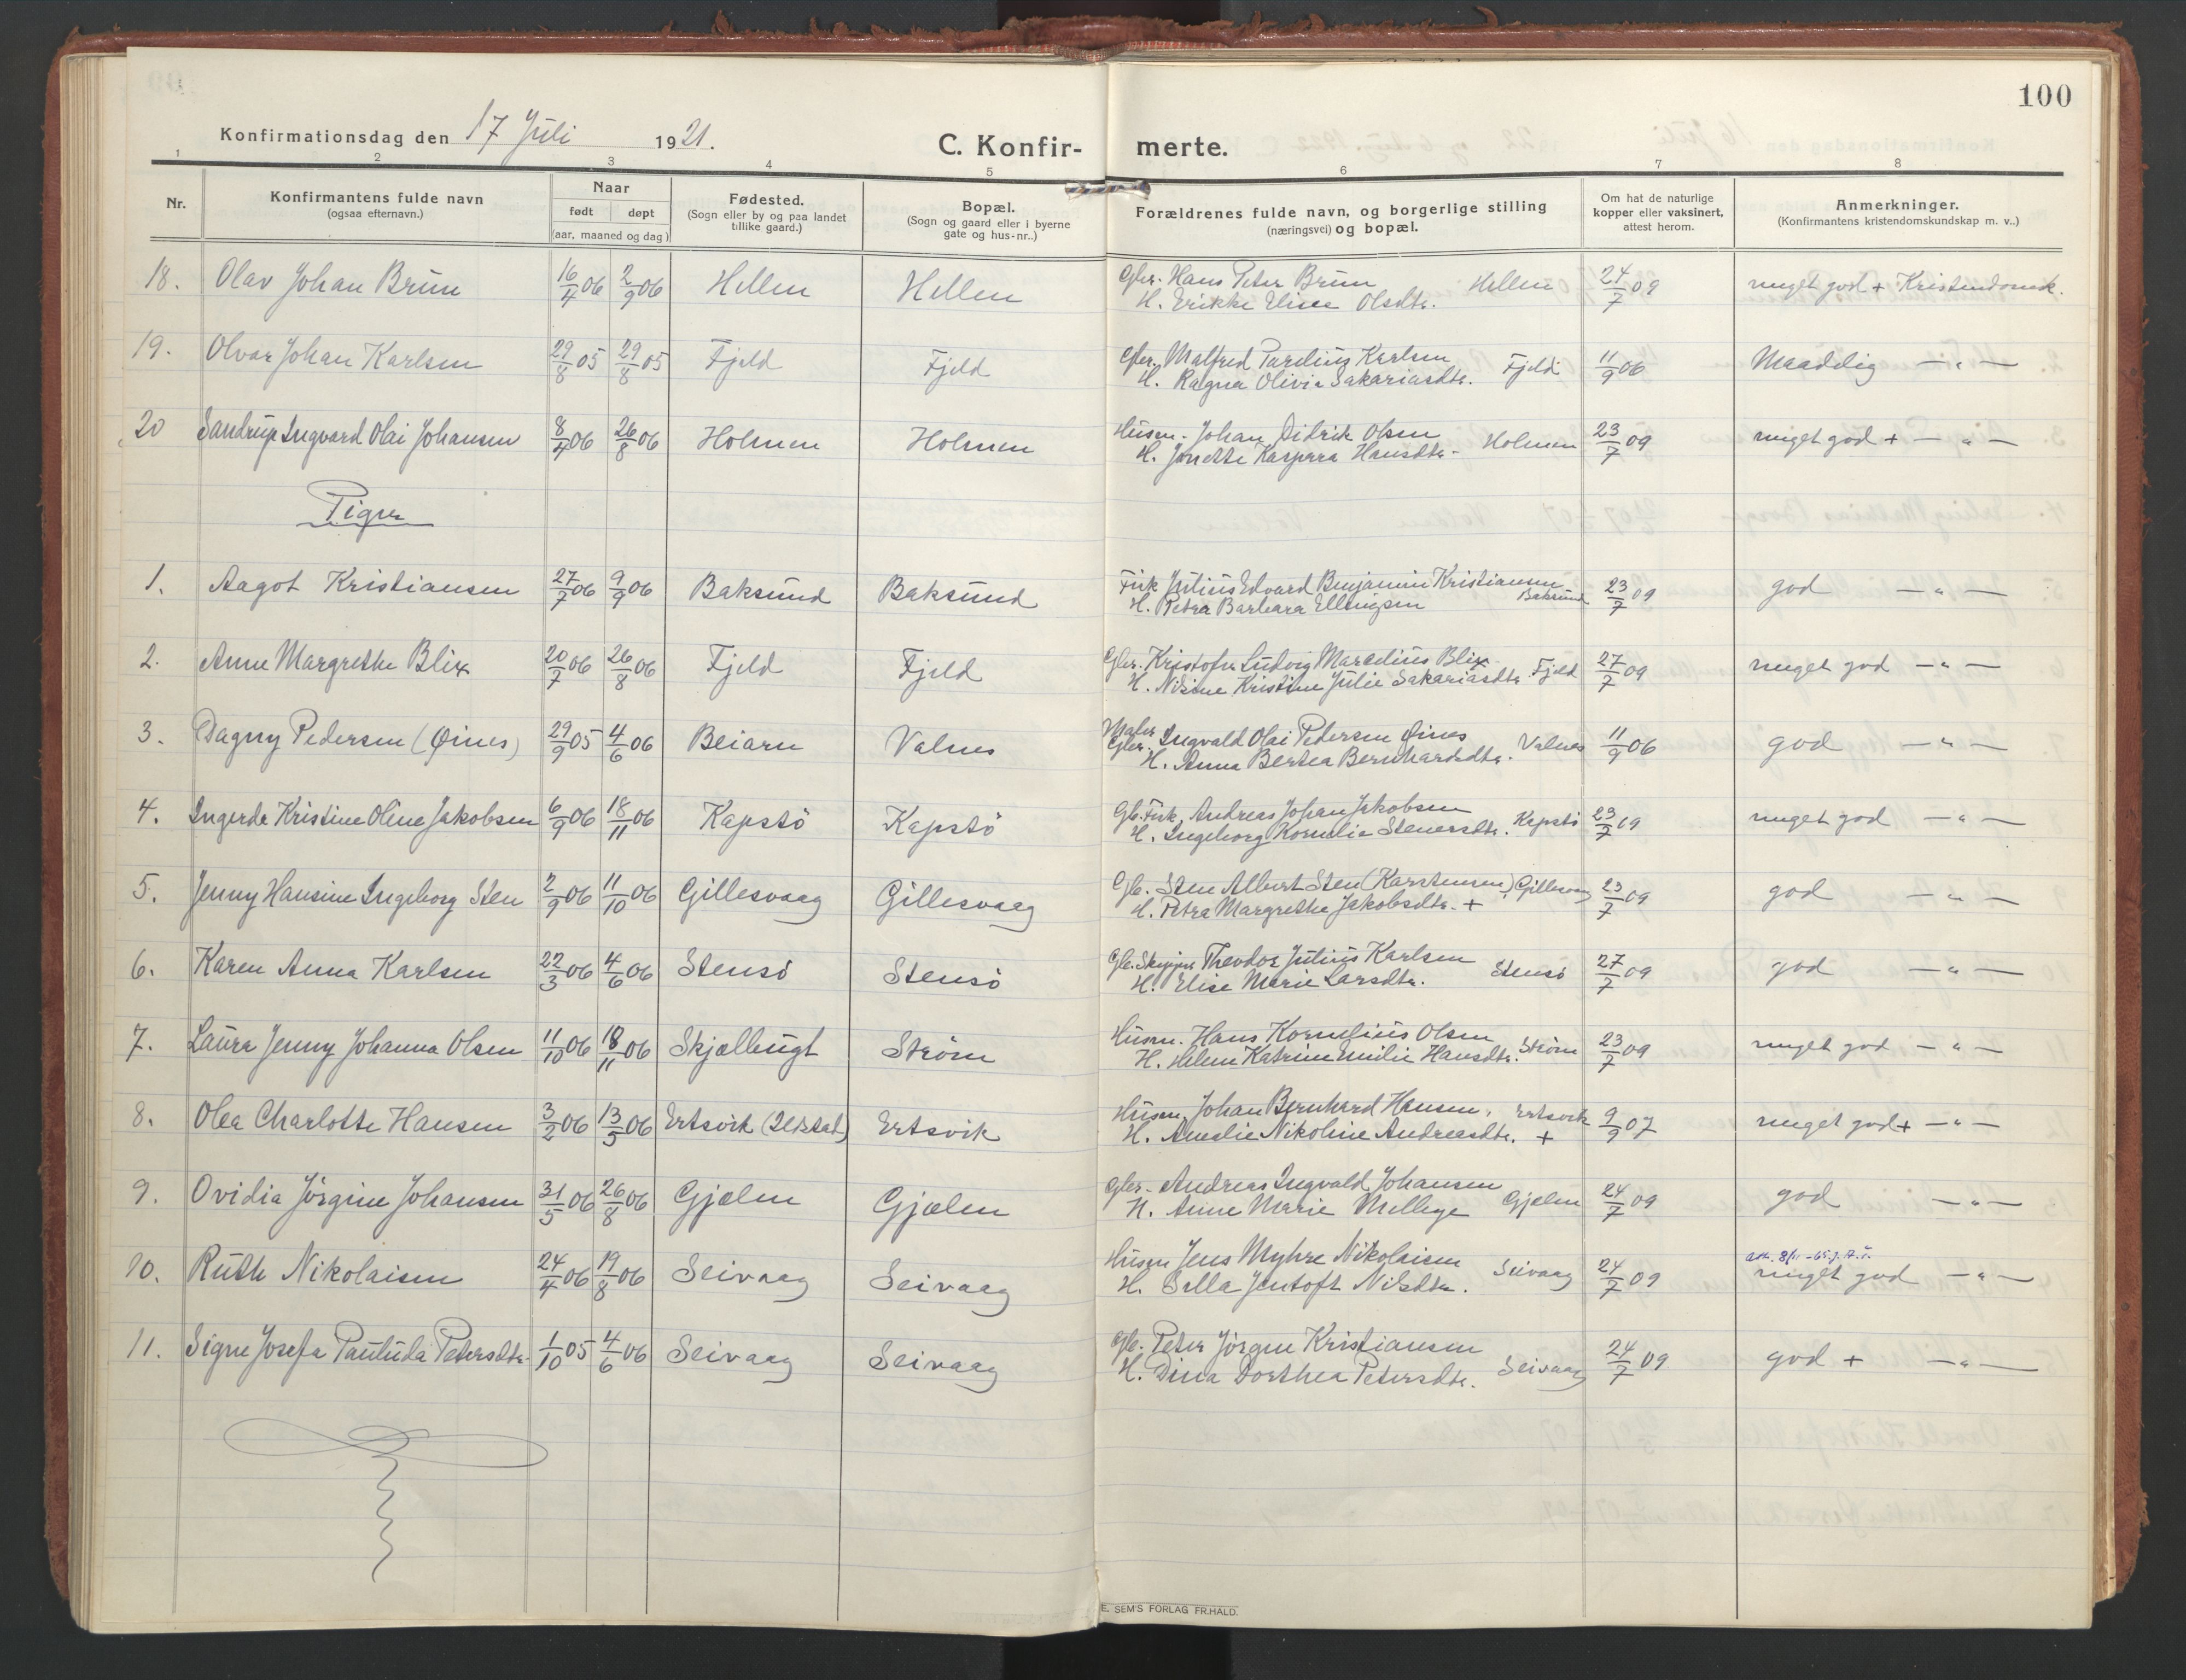 100
Konfirmationsdag den 17 Juli 1921.
C. Konfir- merte.
1 2 3 4 5 6 7 8
Nr.
Konfirmantens fulde navn
(ogsaa efternavn.)
Naar
født døpt
(aar, maaned og dag)
Fødested.
(Sogn eller by og paa landet
tillike gaard.)
Bopæl.
(Sogn og gaard eller i byerne
gate og hus-nr..)
Forældrenes fulde navn, og borgerlige stilling
(næringsvei) og bopæl.
Om hat de naturlige
kopper eller vaksinert,
attest herom.
Anmerkninger.
(Konfirmantens kristendomskundskap m. v..)
18. Olav Johan Brun 16/4 06 2/9 06 Hellen Hellen Gbr. Hans Peter Brun Hellen 24/7 09 meget god + Kristendomsk.
H. Erikke Elise Olsdtr.
19. Olvar Johan Karlsen 29/8 05 29/8 05 Fjeld Fjeld Gbr. Malfred Parelius Karlsen Fjeld 11/9 06 Maadelig — " —
H. Ragna Olivia Sakariasdtr.
20 Sandrup Ingvard Olai Johansen 8/4 06 26/8 06 Holmen Holmen Husm. Johan Didrik Olsen Holmen 23/7 09 meget god + — " —
H. Jonette Kaspara Hansdtr.
Piger
1. Aagot Kristiansen 27/7 06 9/9 06 Baksund Baksund Fisk Julius Edvard Benjamin Kristiansen Baksund 23/7 09 god — " —
H. Petra Barbara Ellingsen
2. Anne Margrethe Blix 20/7 06 26/8 06 Fjeld Fjeld Gbr. Kristofer Ludvig Marelius Blix Fjeld 27/7 09 meget god — " —
H. Nisine Kristine Julie Sakariasdtr.
3. Dagny Pedersen (Øines) 29/9 05 4/6 06 Beiarn Valnes Maler Gbr. Ingvald Olai Pedersen Øines Valnes 11/9 06 god — " —
H. Anna Bertea Bernhardsdtr.
4. Ingerda Kristine Oline Jakobsen 6/9 06 18/11 06 Kapstö Kapstö Gb. Fisk. Andreas Johan Jakobsen Kapstö 23/7 09 meget god — " —
H. Ingeborg Kornelia Stenersdtr.
5. Jenny Hansine Ingeborg Sten 2/9 06 11/10 06 Gillesvaag Gillesvaag Gb. Sten Albert Sten (Karstensen) Gillesvaag 23/7 09 god — " —
H. Petra Margrethe Jakobsdtr. +
6. Karen Anna Karlsen 22/3 06 4/6 06 Stensö Stensö Gb. Skipper Theodor Julius Karlsen Stensö 27/7 09 god — " —
H. Elise Marie Larsdtr.
7. Laura Jenny Johanna Olsen 11/10 06 18/11 06 Skjælbugt Strøm Husm. Hans Kornelius Olsen Strøm 23/7 09 meget god — " —
H. Helene Katrine Emilie Hansdtr.
8. Olea Charlotte Hansen 3/2 06 13/5 06 Ertsvik Ertsvik Husm. Johan Bernhard Hansen. Ertsvik 9/9 07 meget god + — " —
H. Amalie Nikoline Andreasdtr. +
9. Ovidia Jörgine Johansen 31/5 06 26/8 06 Gjælen Gjælen Gbr. Andreas Ingvald Johansen Gjælen 24/7 09 god — " —
H. Anne Marie Mellbye
10. Ruth Nikolaisen 24/4 06 19/8 06 Seivaag Seivaag Husm Jens Myhre Nikolaisen Seivaag 24/7 09 meget god — " —
H. Sella Jentoft Nilsdtr.
11. Signe Josefa Paulida Petersdtr. 1/10 05 4/6 06 Seivaag Seivaag Gb. Peter Jörgen Kristiansen Seivaag 24/7 09 god + — " —
H. Dina Dorthea Petersdtr.
E. SEM'S FORLAG FR.HALD.